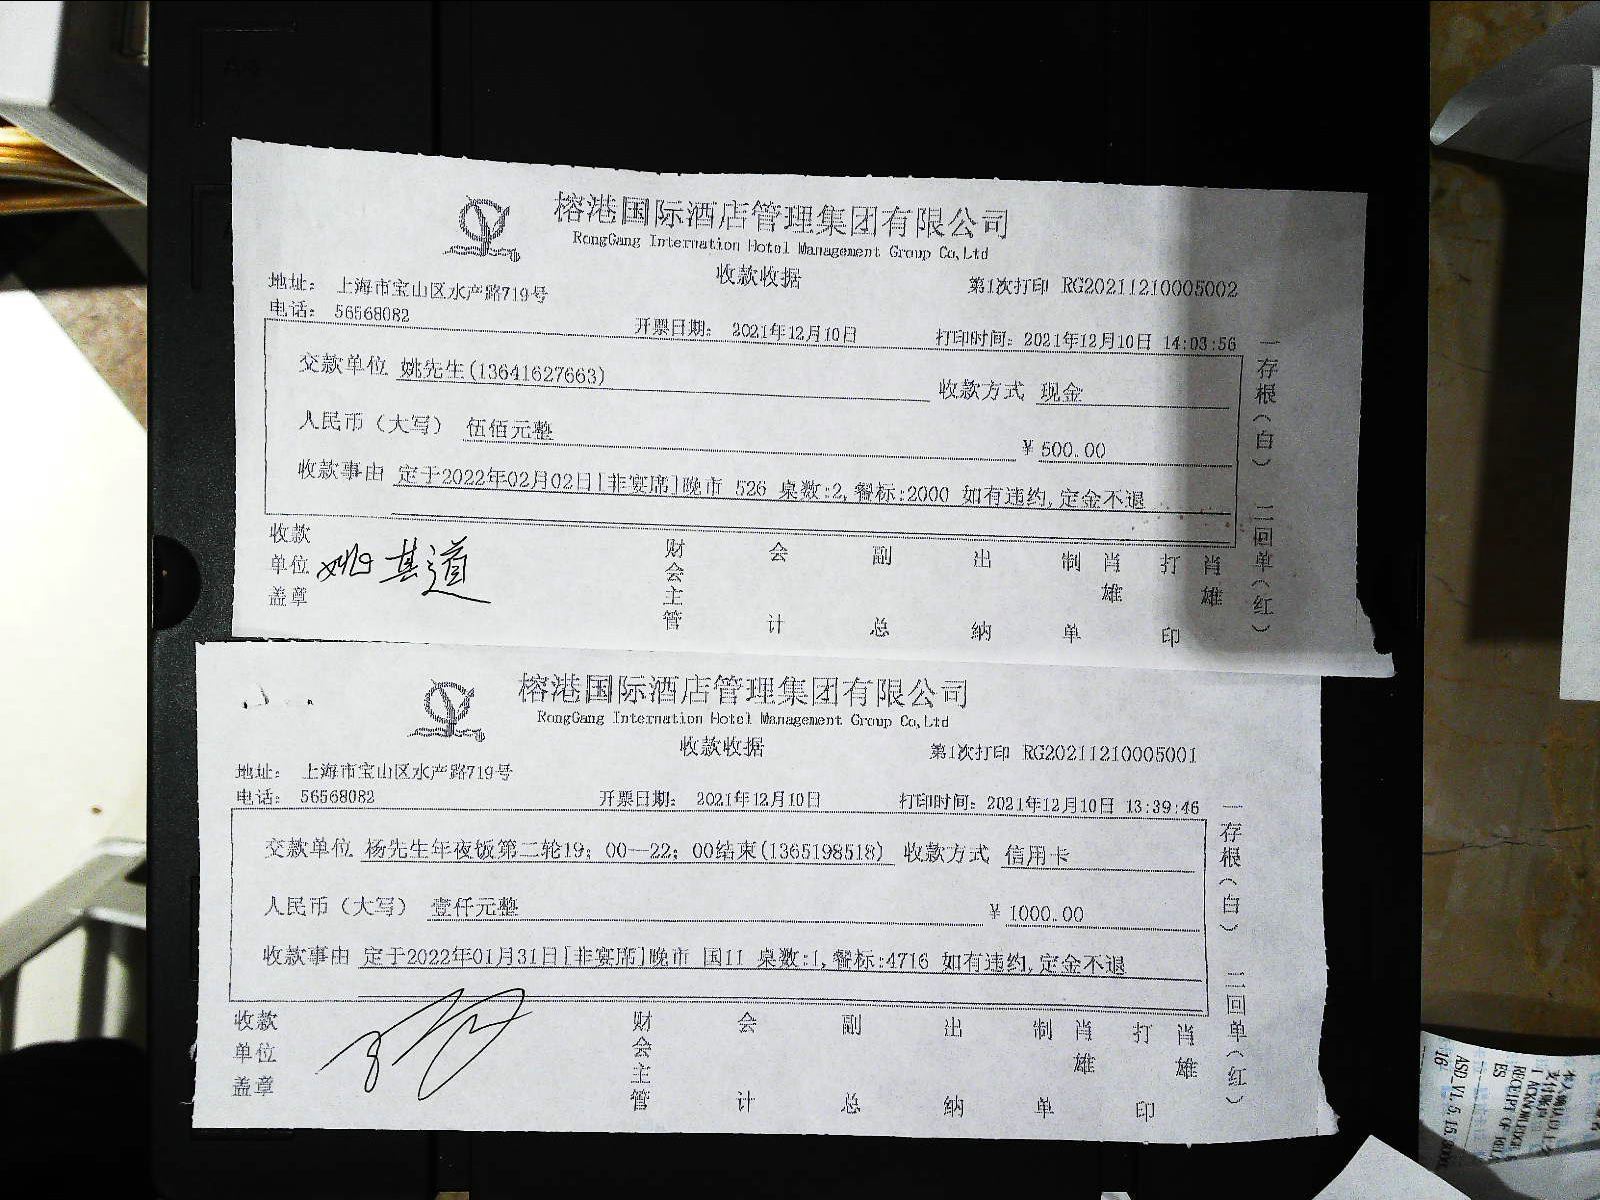 榕港国际酒店管理集团有限公司
RongGang Internation Hotel Management Group Co,Ltd
收款收据
第1次打印 RG20211210005002
地址: 上海市宝山区水产路719号
电话: 56568082
开票日期: 2021年12月10日
打印时间: 2021年12月10日 14:03:56
交款单位 姚先生(13641627663)
收款方式 现金
人民币（大写） 伍佰元整
¥ 500.00
收款事由 定于2022年02月02日[非宴席]晚市 526 桌数:2,餐标:2000 如有违约,定金不退
一存根（白） 二回单（红）
收款单位盖章
姚其道
财会主管 会计 副总 出纳 制单 肖雄 打印 肖雄
榕港国际酒店管理集团有限公司
RongGang Internation Hotel Management Group Co,Ltd
收款收据
第1次打印 RG20211210005001
地址: 上海市宝山区水产路719号
电话: 56568082
开票日期: 2021年12月10日
打印时间: 2021年12月10日 13:39:46
交款单位 杨先生年夜饭第二轮19；00—22；00结束(1365198518)
收款方式 信用卡
人民币（大写） 壹仟元整
¥ 1000.00
收款事由 定于2022年01月31日[非宴席]晚市 国11 桌数:1,餐标:4716 如有违约,定金不退
一存根（白） 二回单（红）
收款单位盖章
财会主管 会计 副总 出纳 制单 肖雄 打印 肖雄
I ACKNOWLEDGE
RECEIPT OF
ES
ASD_V1.5.15
16